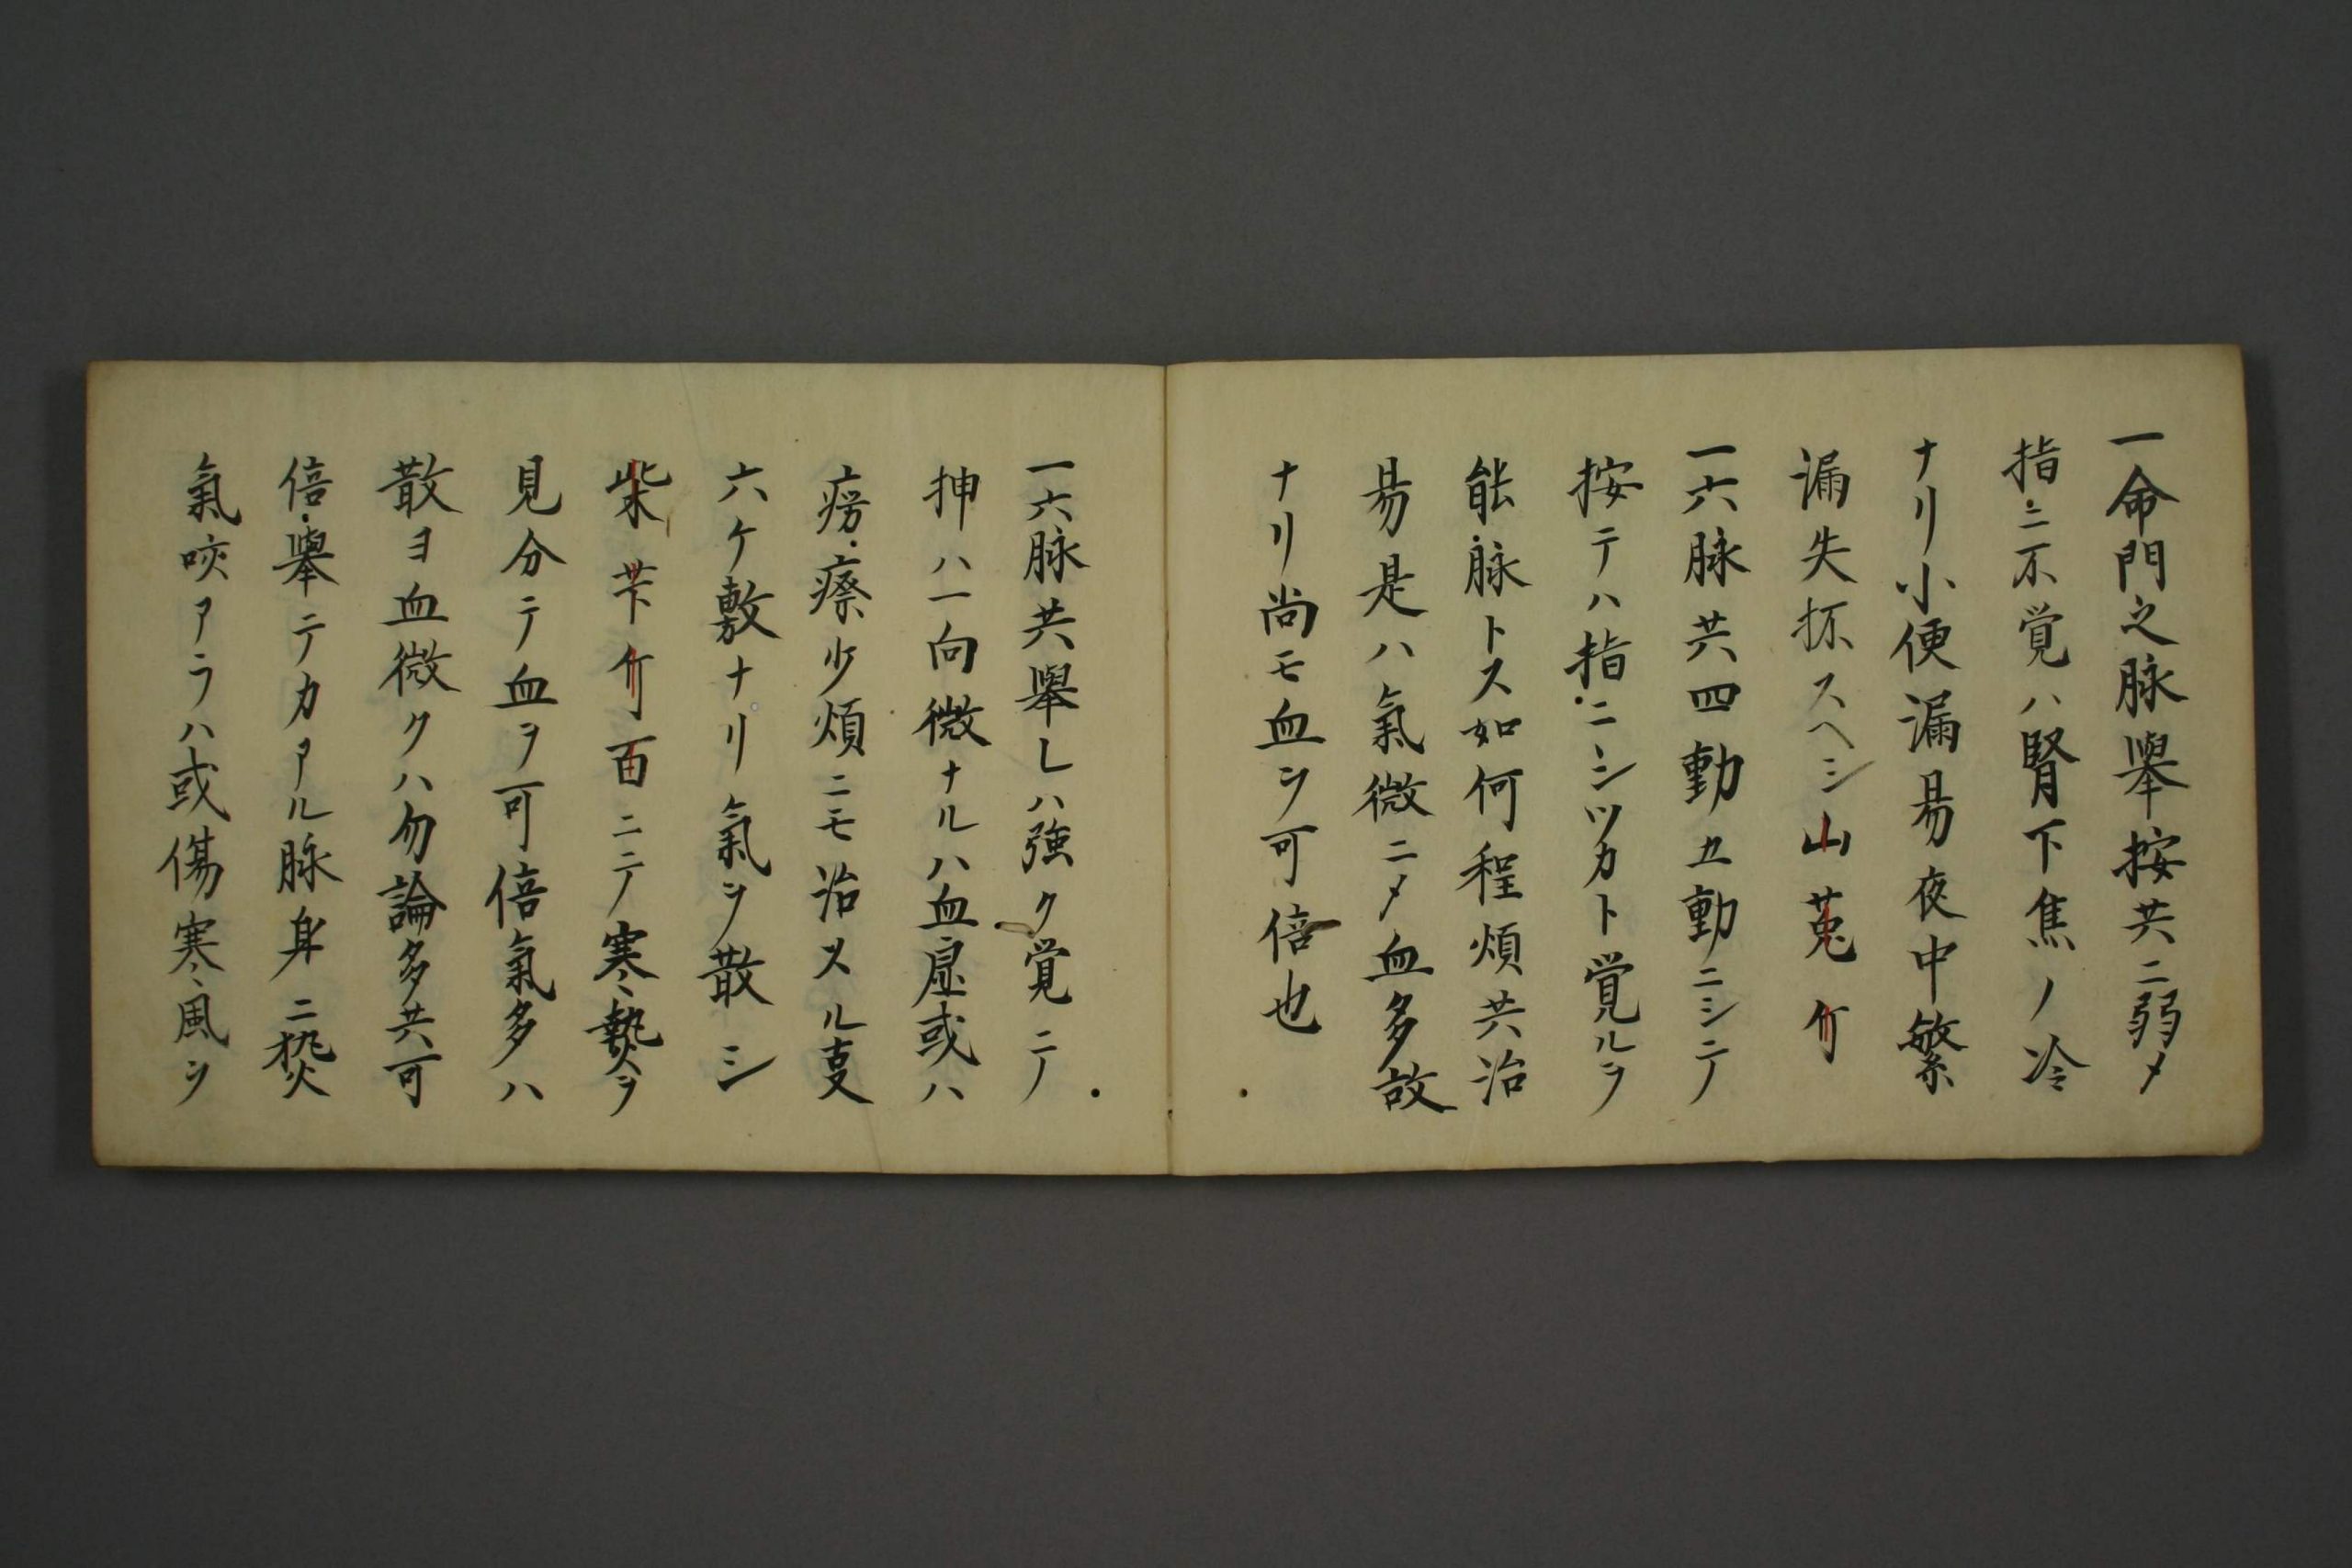 一命門之脉擧按共ニ弱〆
指ニ不覚ハ腎下焦ノ冷
ナリ小便漏易夜中繁
漏失抔スヘシ山菟
一六脉共四動五動ニシテ
按テハ指ニシツカト覚ルヲ
能脉トス如何程煩共治
易是ハ氣微ニ〆血多故
ナリ尚モ血ヲ可倍也
一六脉共擧レハ強ク覚ニテ
抻ハ一向微ナルハ血虚或ハ
癆瘵少煩ニモ治スル叓
六ケ敷ナリ氣ヲ散シ
柴芐百ニテ寒熱ヲ
見分テ血ヲ可倍氣多ハ
散ヨ血微クハ勿論多共可
倍擧テカアル脉身ニ熱
氣咳アラハ或傷寒風ヲ